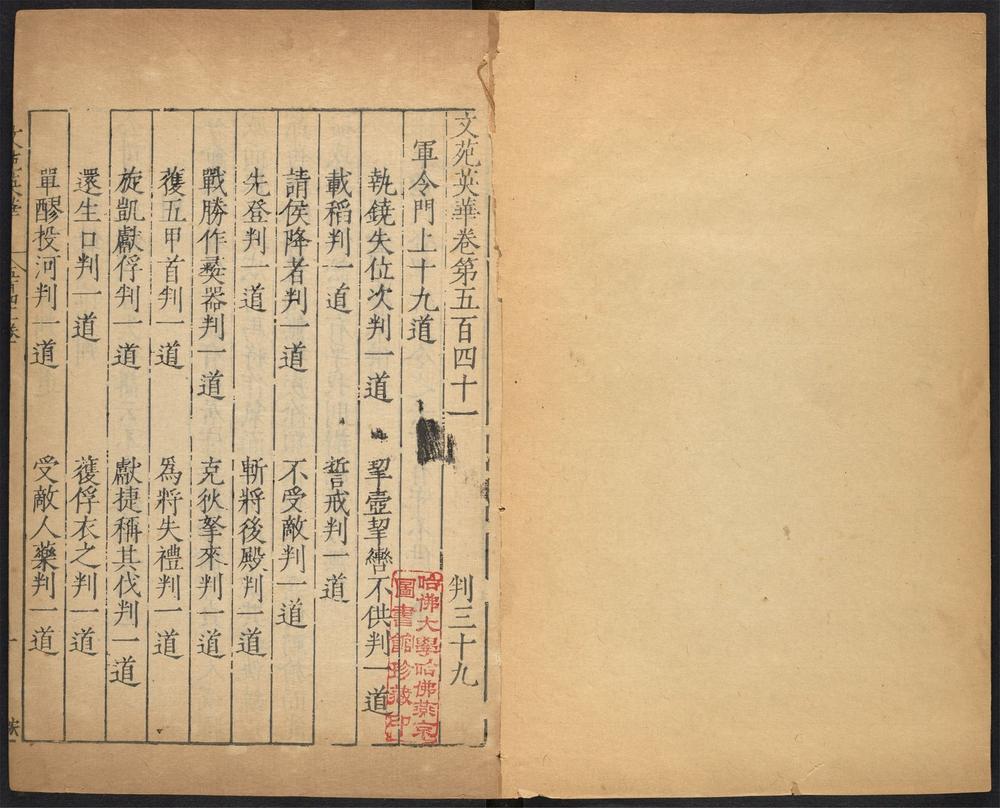 文苑英華卷第五百四十一 判三十九
軍令門上十九道
執鐃失位次判一道 挈壺挈轡不供判一道
載稻判一道 誓戒判一道
請侯降者判一道 不受敵判一道
先登判一道 斬將後殿判一道
戰勝作彜器判一道 克狄拏來判一道
獲五甲首判一道 為將失禮判一道
旋凱獻俘判一道 獻捷稱其伐判一道
還生口判一道 獲俘衣之判一道
單醪投河判一道 受敵人藥判一道
文苑英華
一
哈佛大學哈佛燕京
圖書館珍藏印